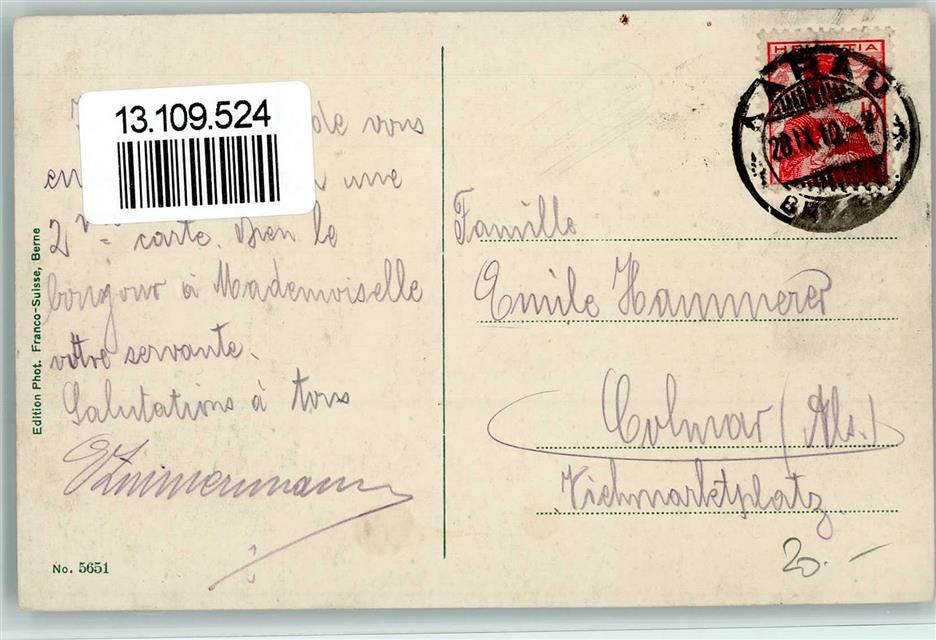 13.109.524
de vous
en une
2me carte. Bien le
bonjour à Mademoiselle
votre servante.
Salutations à tous
EZimmermann
Edition Phot. Franco-Suisse, Berne
No. 5651
HELVETIA
AARAU
28.IX.10.
Famille
Emile Hammerer
Colmar (Als.)
Viehmarktplatz
20.-